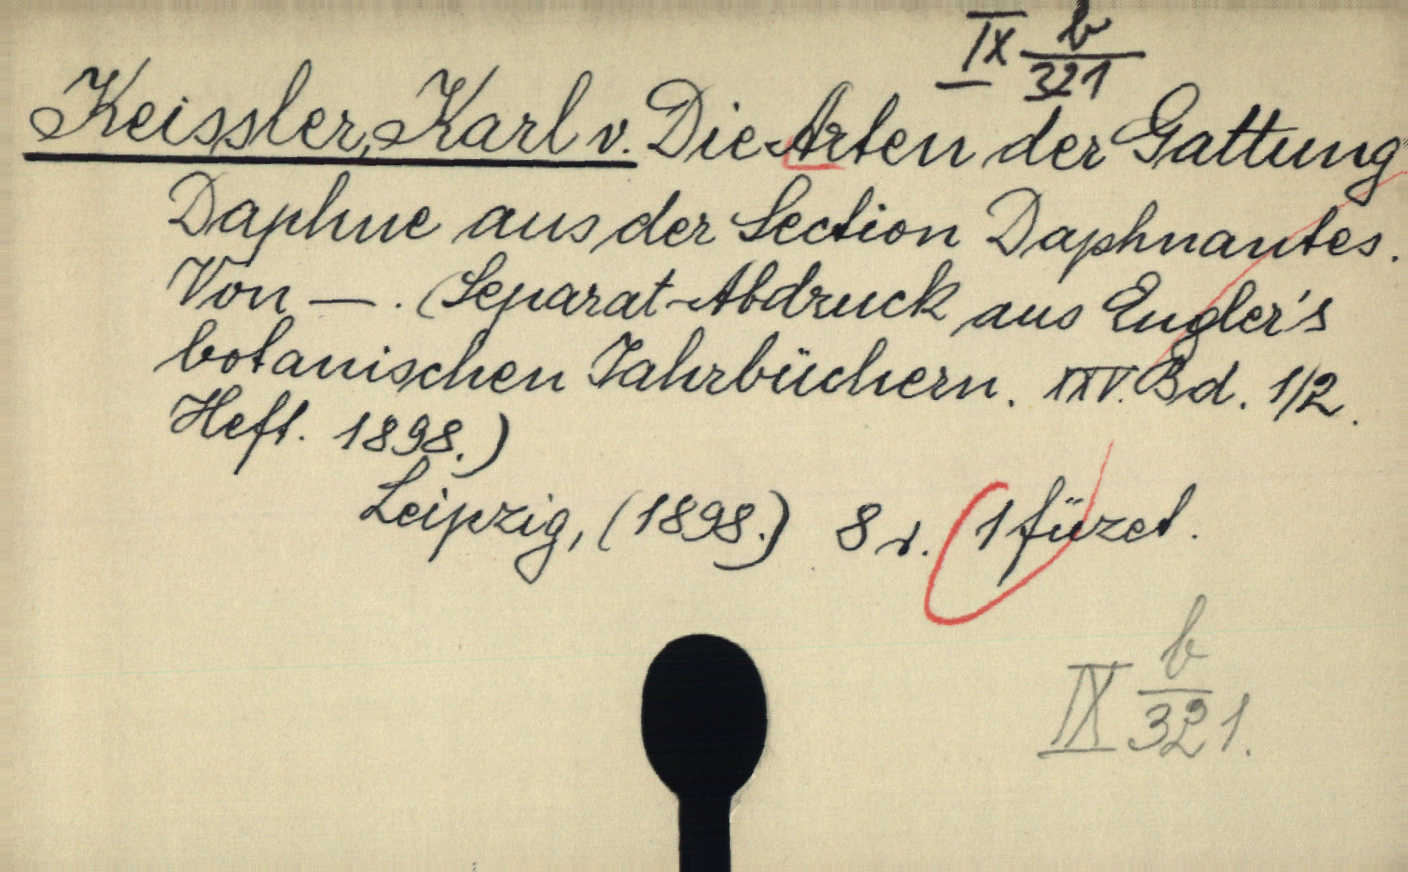 IX b
321
Keissler, Karl v. Die Arten der Gattung
Daphne aus der Section Daphnantes.
Von —. (Separat-Abdruck aus Engler's
botanischen Jahrbüchern. XXV. Bd. 1/2.
Heft. 1898.)
Leipzig, (1898.) 8 r. 1 füzet.
IX b
321.